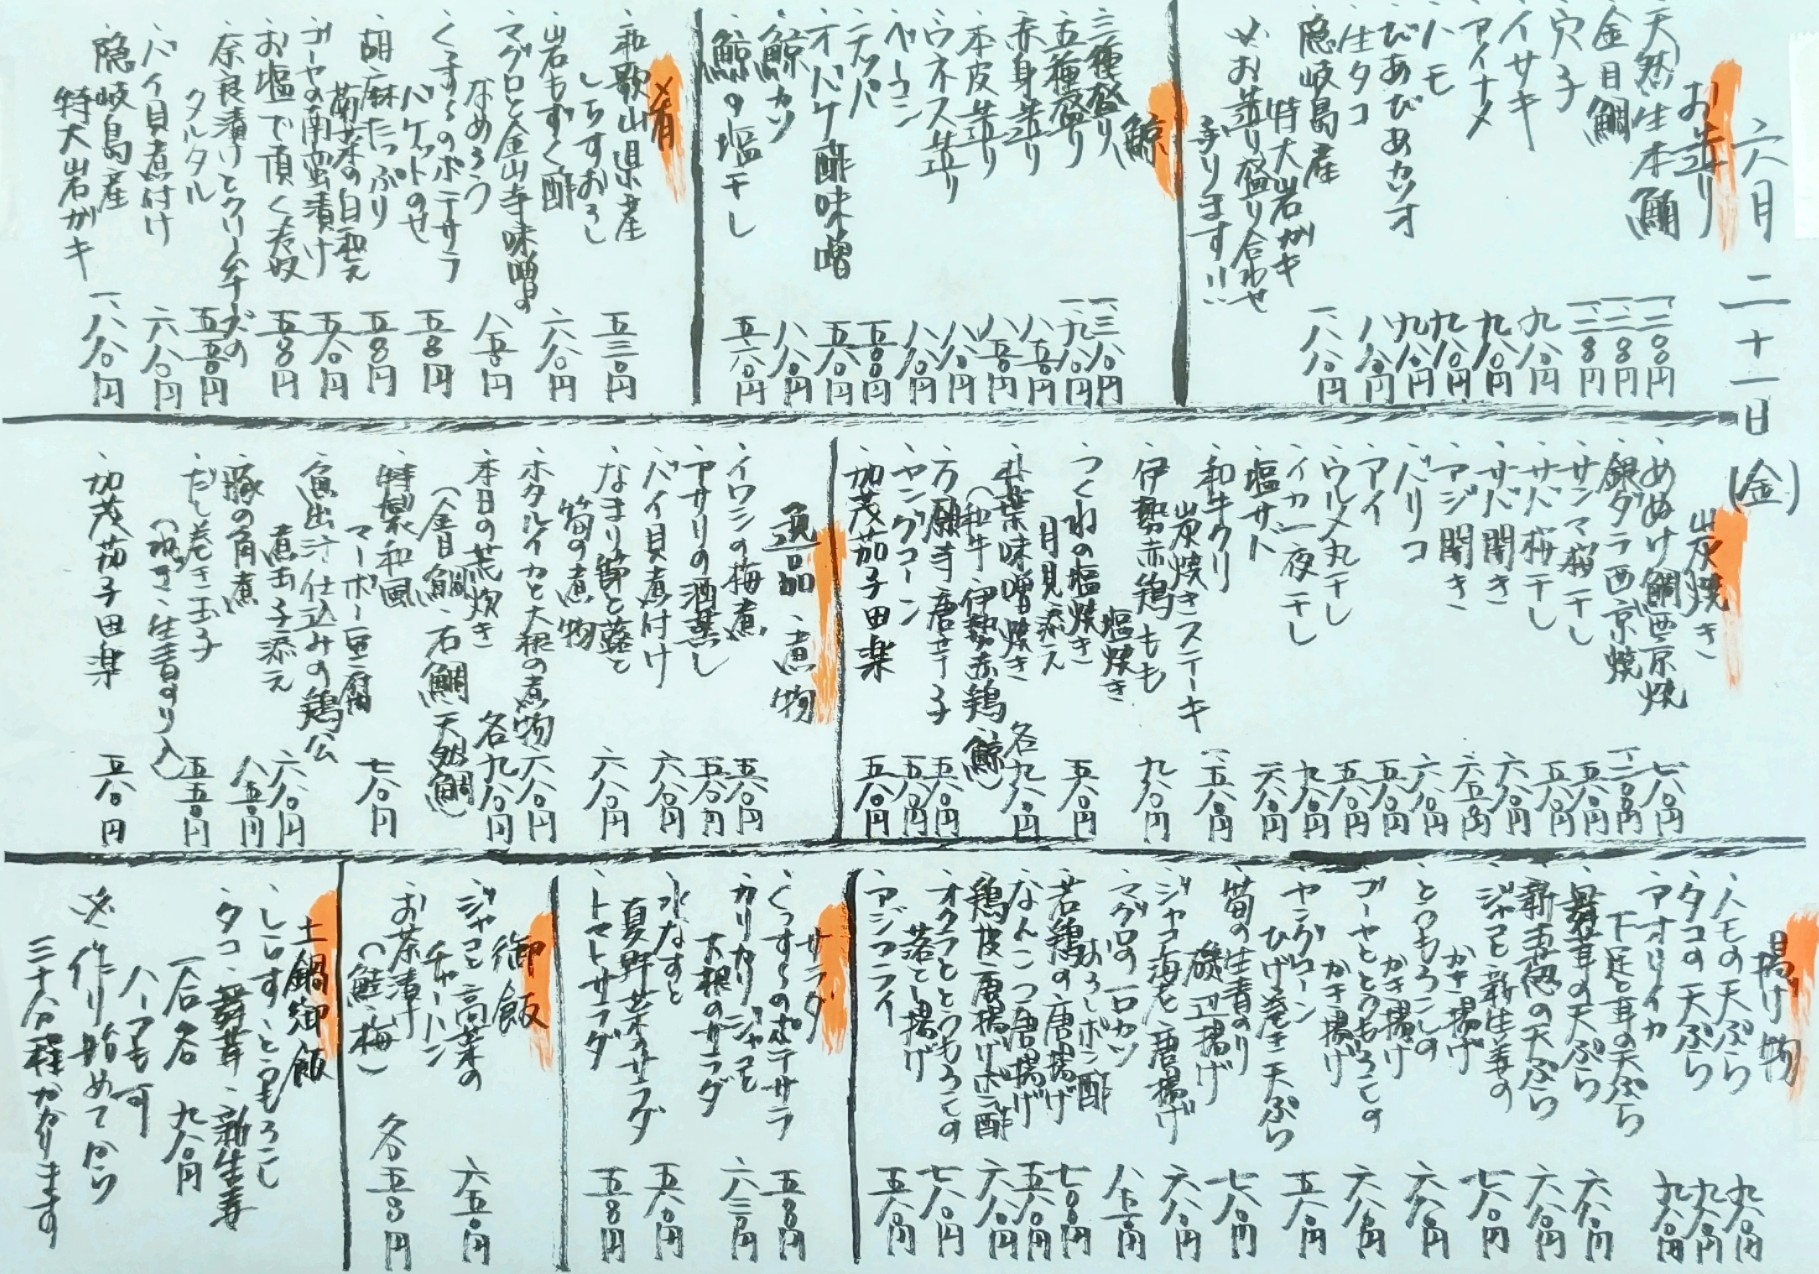 六月二十一日(金)
お造り
、天然生本鮪
、金目鯛
、穴子
、イサキ
、アイナメ
、ハモ
、びあびあカツオ
、生タコ
、隠岐島産
特大岩ガキ
〆お造り盛り合わせ
承ります!!
一二〇〇円
九八〇円
九八〇円
九八〇円
九八〇円
八八〇円
鯨
、三種盛り
、五種盛り
、赤身造り
、本皮造り
、ウネス造り
、ベーコン
、テッパ
、オバケ酢味噌
、鯨カツ
、鯨の塩干し
一三八〇円
一九八〇円
八五〇円
八五〇円
八八〇円
八八〇円
五八〇円
八八〇円
肴
、和歌山県産
しらすおろし
、岩もずく酢
、マグロと金山寺味噌の
なめろう
、くずしのポテサラ
バケットのせ
、胡麻たっぷり
菊菜の白和え
、ゴーヤの南蛮漬け
、お塩で頂く冷奴
、奈良漬けとクリームチーズの
タルタル
、バイ貝煮付け
、隠岐島産
特大岩ガキ
五三〇円
六八〇円
八五〇円
五八〇円
五八〇円
五八〇円
五五〇円
六八〇円
一八〇円
炭焼き
、めぬけ鯛西京焼
、銀ダラ西京焼
、サンマ桜干し
、サバ桜干し
、サバ開き
、アジ開き
、バリコ
、アイ
、ウルメ丸干し
、イカ一夜干し
、塩サバ
、和牛クリ
炭焼きステーキ
、伊勢赤鶏もも
塩焼き
、つくねの塩焼き
月見添え
、朴葉味噌焼き
(和牛、伊勢赤鶏、鯨)
、万願寺唐辛子
、ヤングコーン
、加茂茄子田楽
五八〇円
五八〇円
六八〇円
六五〇円
六八〇円
五八〇円
五八〇円
九八〇円
六八〇円
一五八〇円
九八〇円
五八〇円
各九八〇円
五八〇円
五八〇円
五八〇円
一品、煮物
、イワシの梅煮
、アサリの酒蒸し
、バイ貝煮付け
、なまり節と蕗と
筍の煮物
、ホタルイカと大根の煮物
、本日の荒炊き
(金目鯛、石鯛、天然鯛)
、特製和風
マーボー豆腐
、魚出汁仕込みの鶏公
、豚の角煮
煮玉子添え
、だし巻き玉子
、加茂茄子田楽
五八〇円
五八〇円
六八〇円
六八〇円
六八〇円
各九八〇円
七八〇円
六八〇円
八五〇円
五五〇円
五八〇円
揚げ物
、ハモの天ぷら
、タコの天ぷら
、アオリイカ
下足と耳の天ぷら
、舞茸の天ぷら
、ジャコと新生姜の
かき揚げ
、とうもろこしの
かき揚げ
、ゴーヤととうもろこしの
かき揚げ
、ヤングコーン
ひげ巻き天ぷら
、筍の生青のり
磯辺揚げ
、ジャコ海老唐揚げ
、マグロの一口カツ
おろしポン酢
、若鶏の唐揚げ
、なんこつ唐揚げ
、鶏皮唐揚げポン酢
、オクラととうもろこしの
落とし揚げ
、アジフライ
九八〇円
九八〇円
九八〇円
六八〇円
六八〇円
七八〇円
六八〇円
六八〇円
五八〇円
七八〇円
六八〇円
八五〇円
七八〇円
五八〇円
六八〇円
七八〇円
五八〇円
サラダ
、くずしのポテサラ
、カリカリジャコと
大根のサラダ
、水なすと
夏野菜のサラダ
、トマトサラダ
五八〇円
六三〇円
五八〇円
五八〇円
御飯
、ジャコと高菜の
チャーハン
、お茶漬け
(鮭、梅)
六五〇円
各五八〇円
土鍋御飯
、しらすとうもろこし
、タコ、舞茸、新生姜
一合各 九八〇円
ハーフも可
〆作り始めてから
三十分程かかります